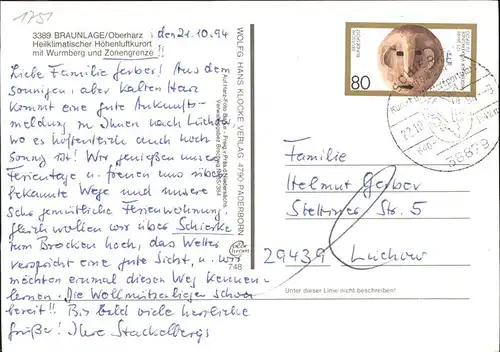 1751
3389 BRAUNLAGE/Oberharz
Heilklimatischer Höhenluftkurort
mit Wurmberg und Zonengrenze!!
, den 21.10.94
Liebe Familie Gerber! Aus dem
sonnigen, aber kalten Harz
kommt eine gute Ankunfts-
meldung zu Ihnen nach Lüchow
wo es hoffentlich auch noch
sonnig ist! Wir genießen unsere
Ferientage u. freuen uns über
bekannte Wege und unsere
sehr gemütliche Ferienwohnung.
Gleich wollen wir über Schierke
zum Brocken hoch, das Wetter
verspricht eine gute Sicht, u. wir
möchten einmal diesen Weg kennen-
lernen. Die Wollmützen liegen schon
bereit!! Bis bald viele herzliche
Grüße! Ihre Stackelbergs
WOLFG. HANS KLOCKE VERLAG 4790 PADERBORN
748
DEUTSCHE
BUNDESPOST
80
22.10
38879
Familie
Helmut Gerber
Stettiner Str. 5
29439 Lüchow
Unter dieser Linie nicht beschreiben!